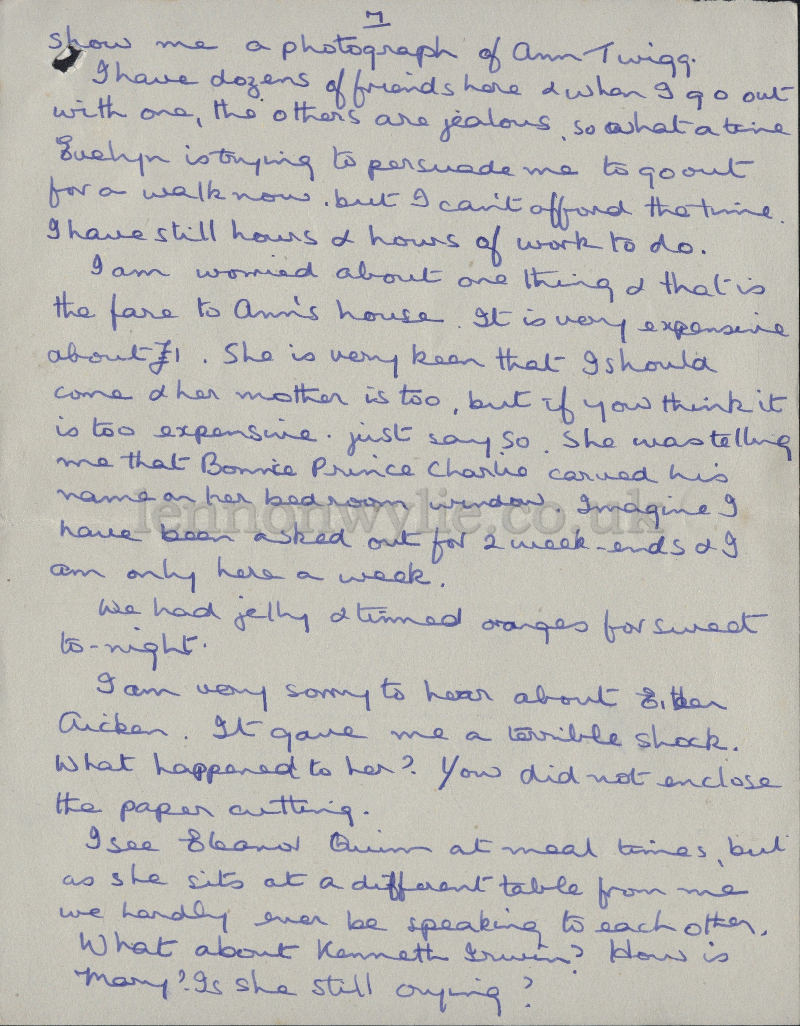 7
show me a photograph of Ann Twigg.
I have dozens of friends here & when I go out
with one, the others are jealous, so what a time
Evelyn is trying to persuade me to go out
for a walk now. but I can't afford the time.
I have still hours & hours of work to do.
I am worried about one thing & that is
the fare to Ann's house. It is very expensive
about £1. She is very keen that I should
come & her mother is too, but if you think it
is too expensive. just say so. She was telling
me that Bonnie Prince Charlie carved his
name on her bedroom window. Imagine I
lennonwylie.co.uk
have been asked out for 2 week-ends & I
am only here a week.
We had jelly & tinned oranges for sweet
to-night.
I am very sorry to hear about
Aicken. It gave me a terrible shock.
What happened to her? You did not enclose
the paper cutting.
I see Eleanor Quinn at meal times, but
as she sits at a different table from me
we hardly ever be speaking to each other.
What about Kenneth Irwin? How is
Mary? Is she still crying?